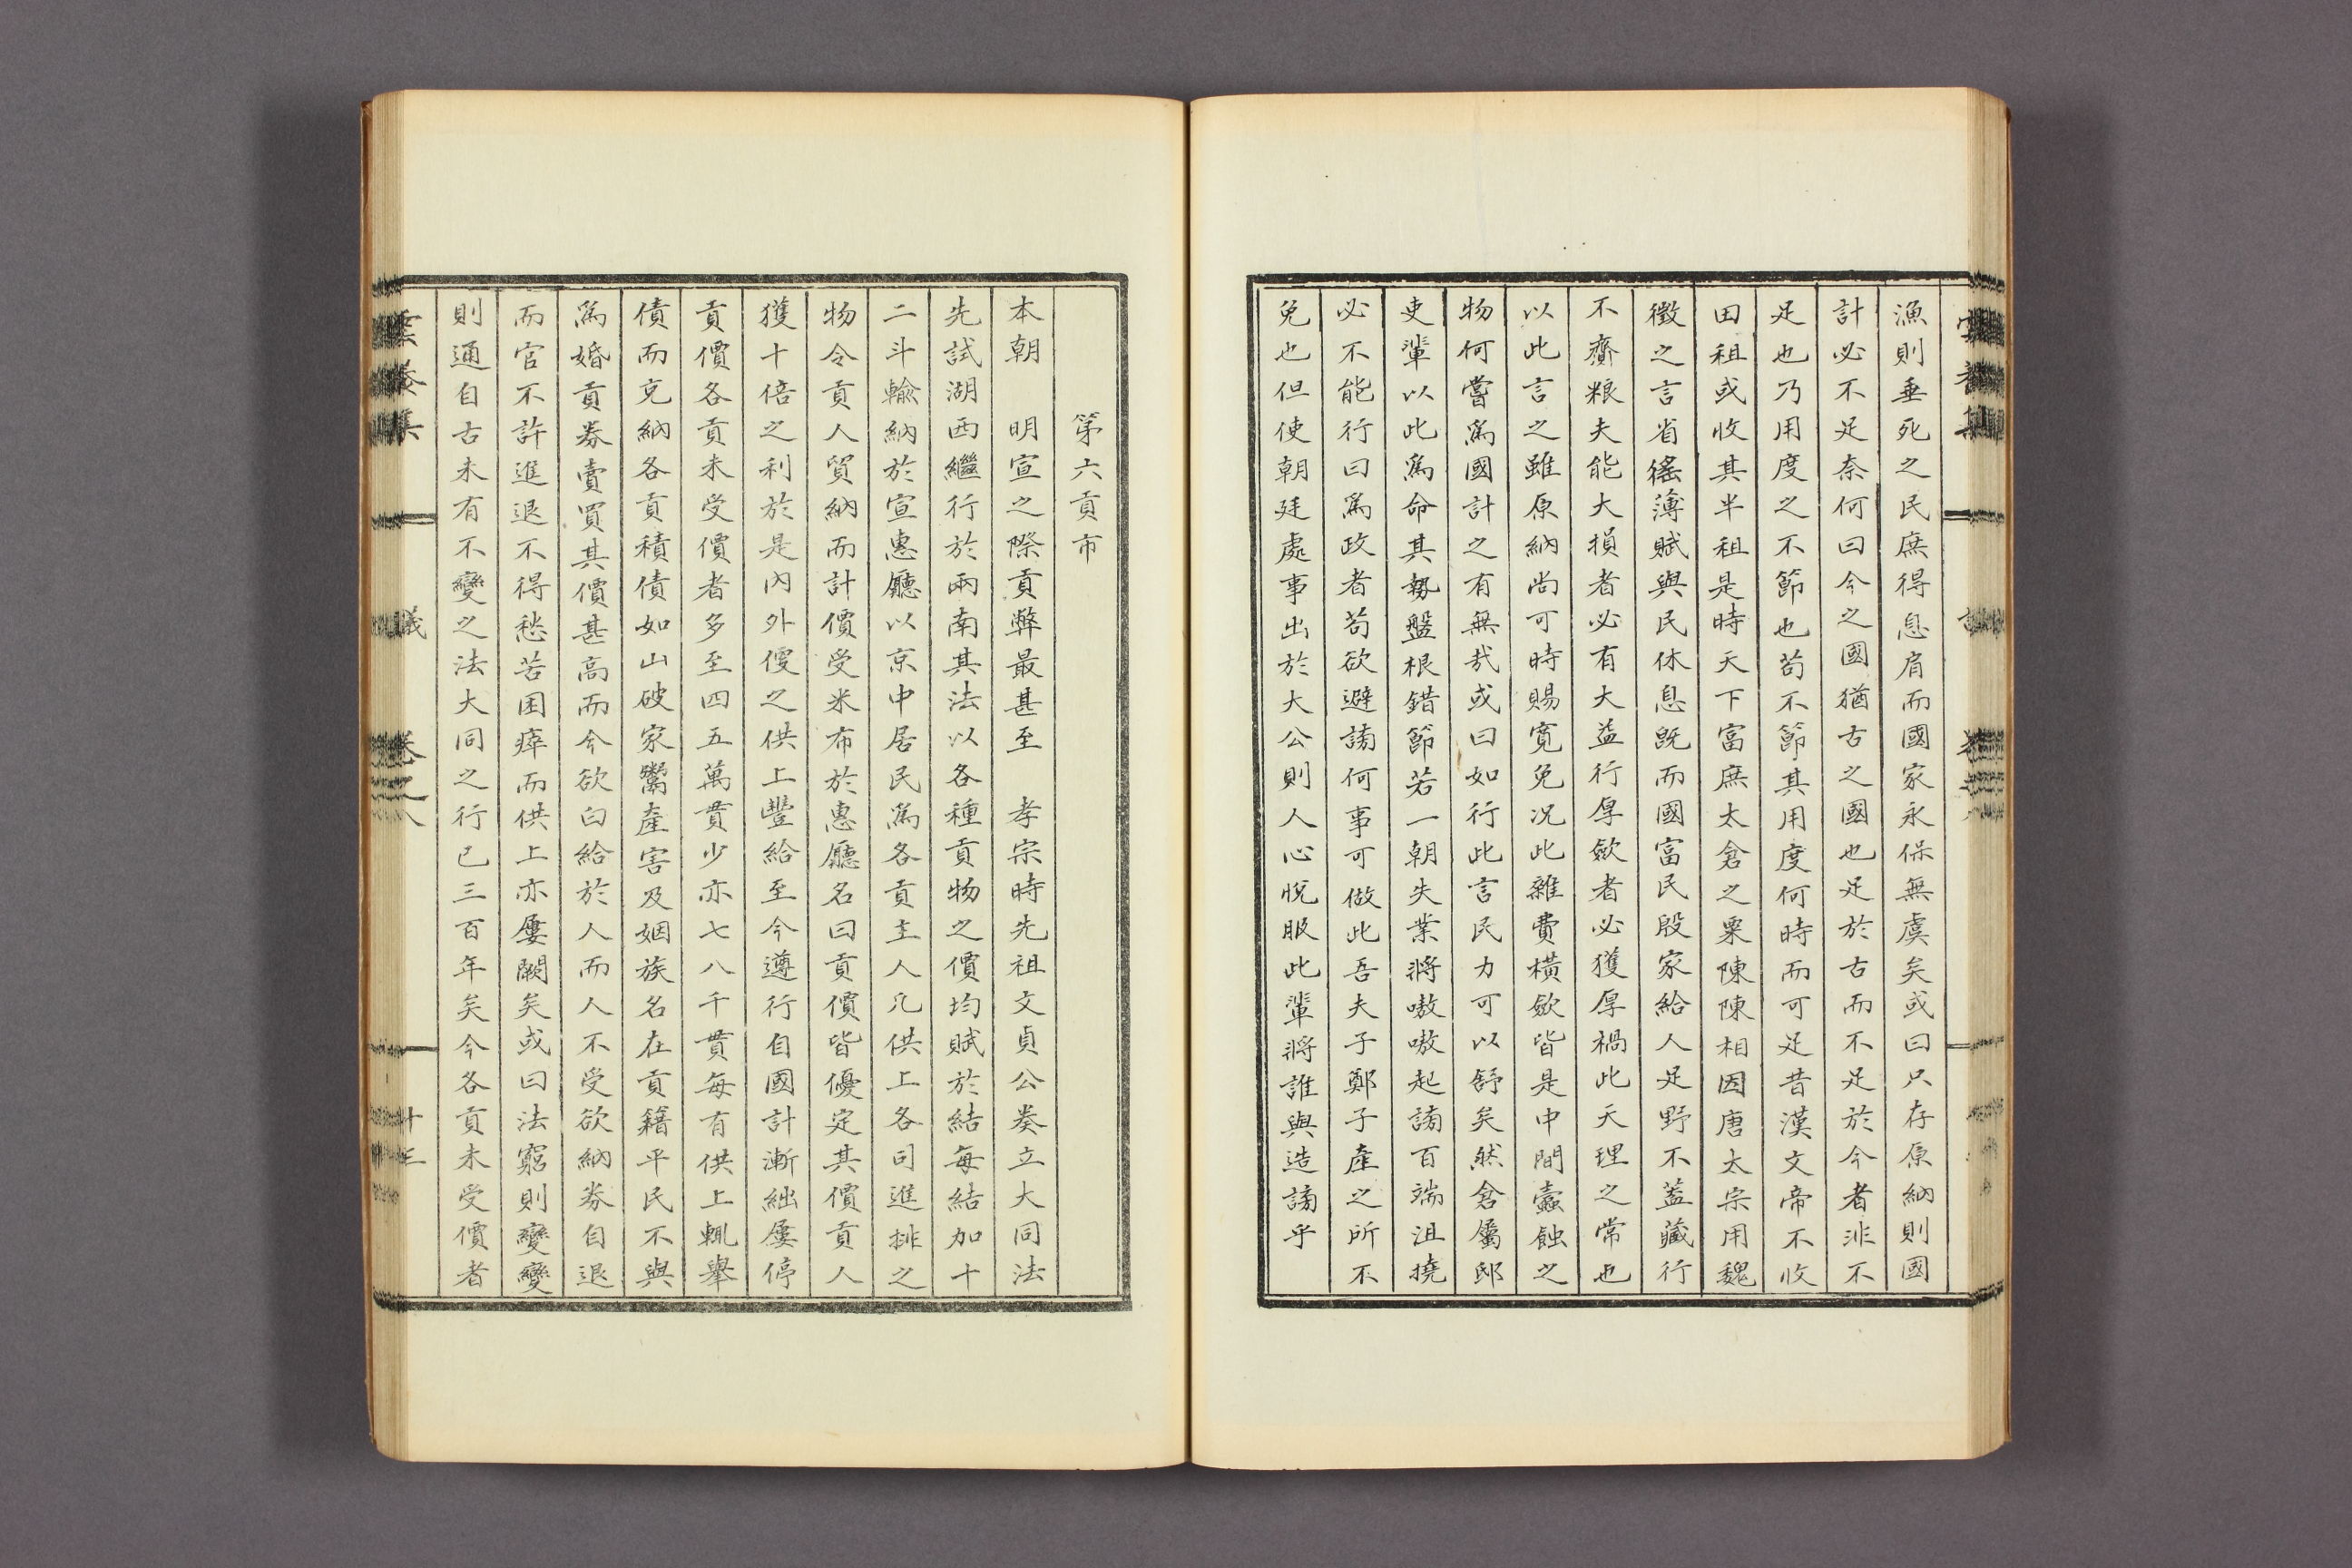 漁則垂死之民庶得息肩而國家永保無虞矣或曰只存原納則國
計必不足奈何曰今之國猶古之國也足於古而不足於今者非不
足也乃用度之不節也苟不節其用度何時而可足昔漢文帝不收
田租或收其半租是時天下富庶太倉之粟陳陳相因唐太宗用魏
徵之言省徭薄賦與民休息旣而國富民殷家給人足野不蓋藏行
不齎粮夫能大損者必有大益行厚斂者必獲厚禍此天理之常也
以此言之雖原納尚可時賜寬免况此雜費橫斂皆是中間蠹蝕之
物何嘗爲國計之有無㢤或曰如行此言民力可以舒矣然倉屬邸
吏輩以此爲命其勢盤根錯節若一朝失業將嗷嗷起謗百端沮撓
必不能行曰爲政者苟欲避謗何事可做此吾夫子鄭子產之所不
免也但使朝廷處事出於大公則人心悅服此輩將誰與造謗乎
第六貢市
本朝　明宣之際貢弊最甚至　孝宗時先祖文貞公奏立大同法
先試湖西繼行於兩南其法以各種貢物之價均賦於結每結加十
二斗輸納於宣惠廳以京中居民爲各貢主人凡供上各司進排之
物令貢人貿納而計價受米布於惠廳名曰貢價皆優定其價貢人
獲十倍之利於是內外便之供上豐給至今遵行自國計漸絀屢停
貢價各貢未受價者多至四五萬貫少亦七八千貫每有供上輒擧
債而充納各貢積債如山破家鬻產害及姻族名在貢籍平民不與
爲婚貢券賣買其價甚高而今欲白給於人而人不受欲納券自退
而官不許進退不得愁苦困瘁而供上亦屢闕矣或曰法窮則變變
則通自古未有不變之法大同之行已三百年矣今各貢未受價者
議
卷之八
十三